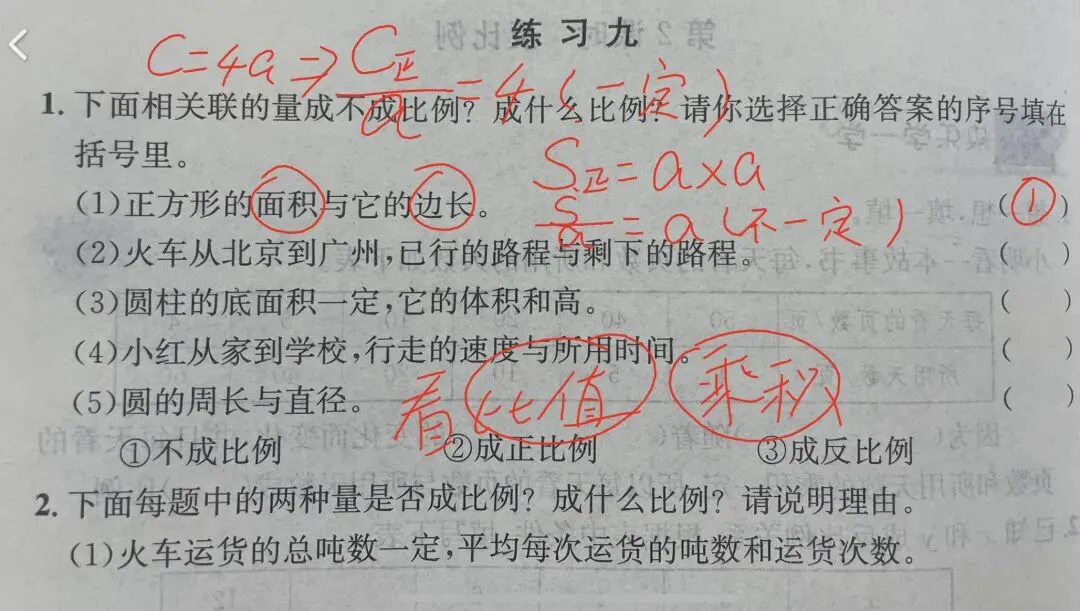 练习九
C=4a⇒C正/a=4(一定)
1.下面相关联的量成不成比例?成什么比例?请你选择正确答案的序号填在
括号里。
S正=a×a
(1)正方形的面积与它的边长。 (①)
S/a=a(不一定)
(2)火车从北京到广州,已行的路程与剩下的路程。 ( )
(3)圆柱的底面积一定,它的体积和高。 ( )
(4)小红从家到学校,行走的速度与所用时间。 ( )
看 比值 乘积
(5)圆的周长与直径。 ( )
①不成比例 ②成正比例 ③成反比例
2.下面每题中的两种量是否成比例?成什么比例?请说明理由。
(1)火车运货的总吨数一定,平均每次运货的吨数和运货次数。